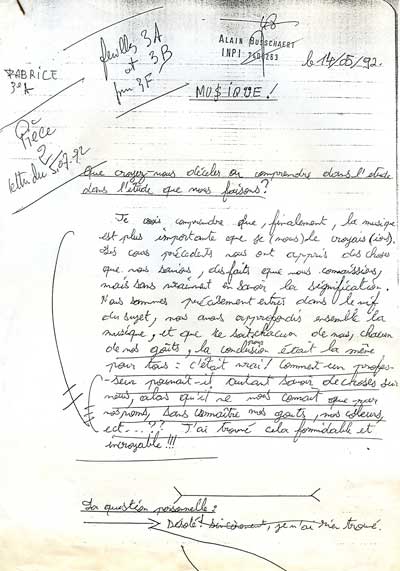 48
feuilles 3A
et 3B
puis 3F
ALAIN BUSSCHAERT
INPI 760263
le 14/05/92.
FABRICE
3°A
MU$IQUE!
Pièce
2
lettre du 5.07.92
Que croyez-vous déceler ou comprendre dans l'étude
dans l'étude que nous faisons?
Je crois comprendre que, finalement, la musique
est plus importante que je (nous) le croyais (ions).
Les cours précédents nous ont appris des choses
que nous savions, des faits que nous connaissions,
mais sans vraiment en savoir la signification.
Nous sommes précisément entrés dans le vif
du sujet, nous avons approfondis ensemble la
musique, et que se soit chacun de nous, chacun
de nos goûts, la conclusion était la même
pour tous : c'était vrai! Comment un profes-
-seur pouvait-il autant savoir de choses sur
nous, alors qu'il ne nous connait que par
nos noms, sans connaître nos goûts, nos couleurs,
ect...?? J'ai trouvé cela formidable et
incroyable!!!
La question personnelle:
Désolé sincèrement, je n'ai rien trouvé.